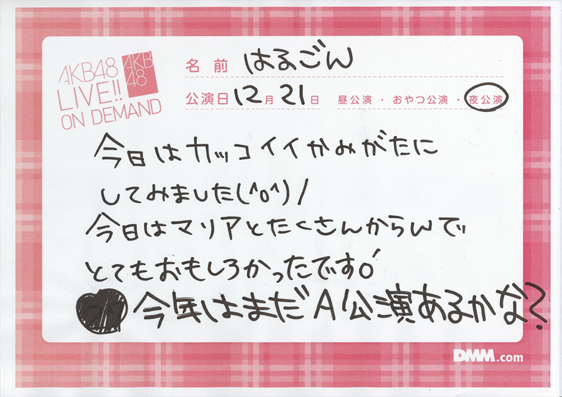 AKB48
LIVE!!
ON DEMAND
AKB
48
名前 はるごん
公演日 12月21日 昼公演・おやつ公演・夜公演
今日はカッコイイかみがたに
してみました(^o^)/
今日はマリアとたくさんからんで
とてもおもしろかったですo'
今年はまだA公演あるかな?
DMM.com